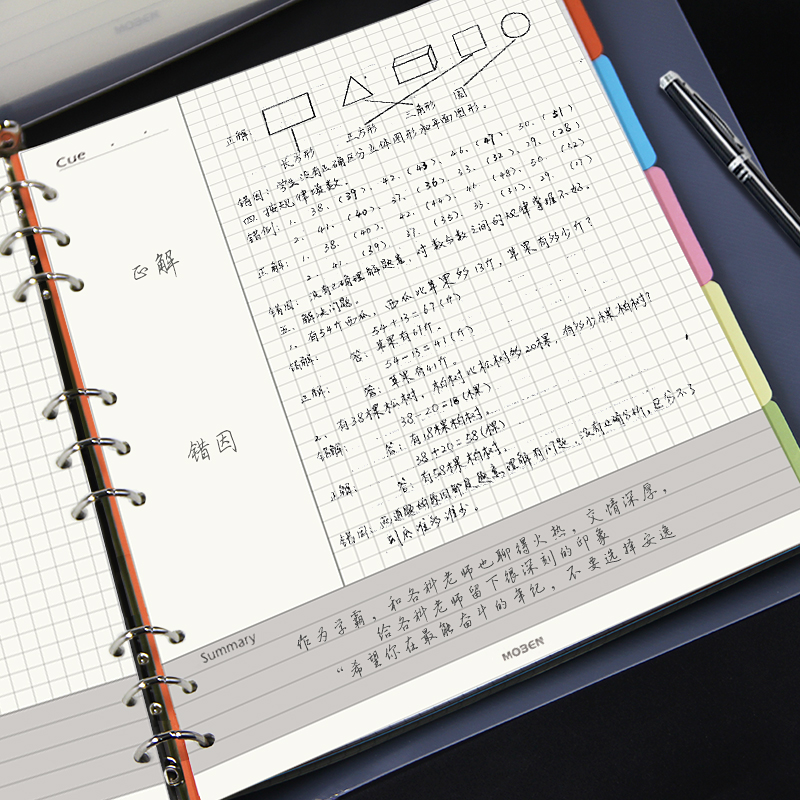 MOBEN
Cue
正解
错因
正解:
长方形 正方形 三角形 圆
错因: 学生没有正确区分立体图形和平面图形。
四、按规律填数。
错例: 1. 38、(39)、42、(43)、46、(47)、50、(51)
2. 41、(40)、37、(36)、33、(32)、29、(28)
正解: 1. 38、(40)、42、(44)、46、(48)、50、(52)
2. 41、(39)、37、(35)、33、(31)、29、(27)
错因: 没有正确理解题意,对数与数之间的规律掌握不好。
五、解决问题。
1、有54斤西瓜,西瓜比苹果多13斤,苹果有多少斤?
错解: 54+13=67(斤)
答: 苹果有67斤。
正解: 54-13=41(斤)
答: 苹果有41斤。
2、有38棵松树,柏树比松树多20棵,有多少棵柏树?
错解: 38-20=18(棵)
答: 有18棵柏树。
正解: 38+20=58(棵)
答: 有58棵柏树。
错因: 两道题的原因都是题意理解有问题,没有正确分析,区分不了
到底谁多谁少。
Summary
作为学霸,和各科老师也聊得火热,交情深厚,
给各科老师留下很深刻的印象
“希望你在最能奋斗的年纪,不要选择安逸
MOBEN